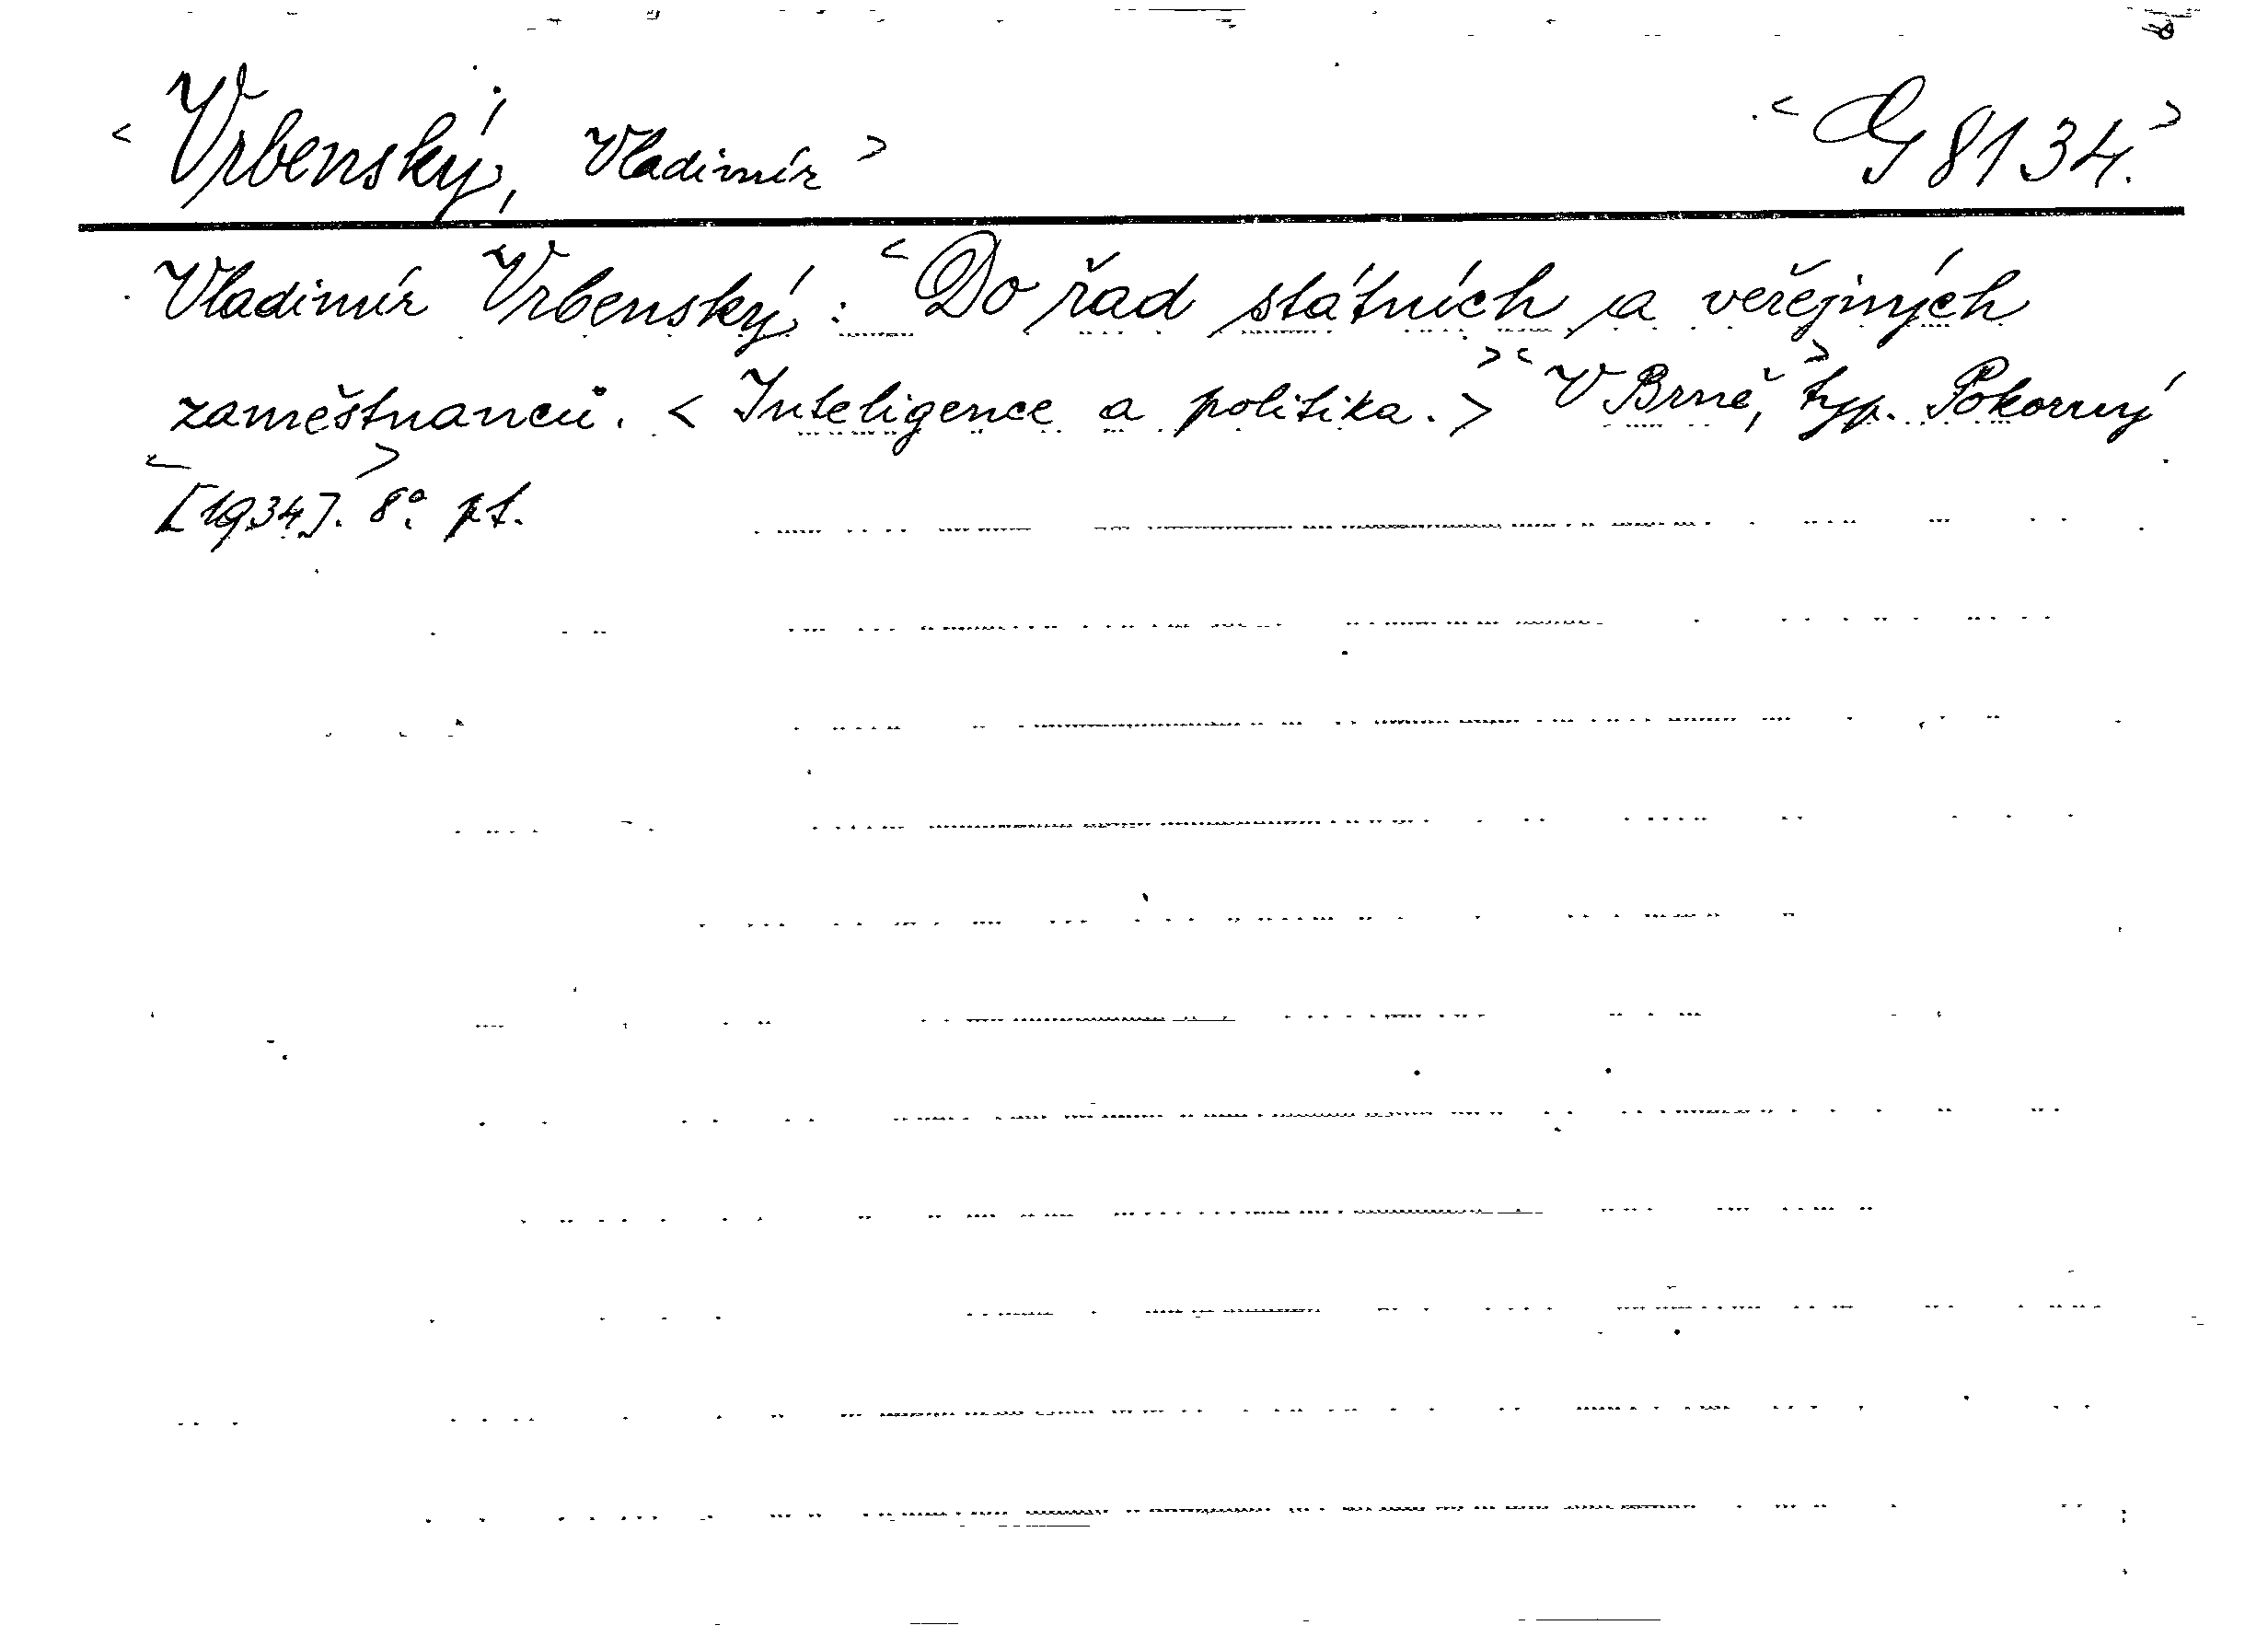 < Vrbenský, Vladimír > < G 8134. >
Vladimír Vrbenský : < Do řad státních a veřejných
zaměstnanců. < Inteligence a politika. > > < V Brně, > typ. Pokorný
< [1934]. > 8°. pf.